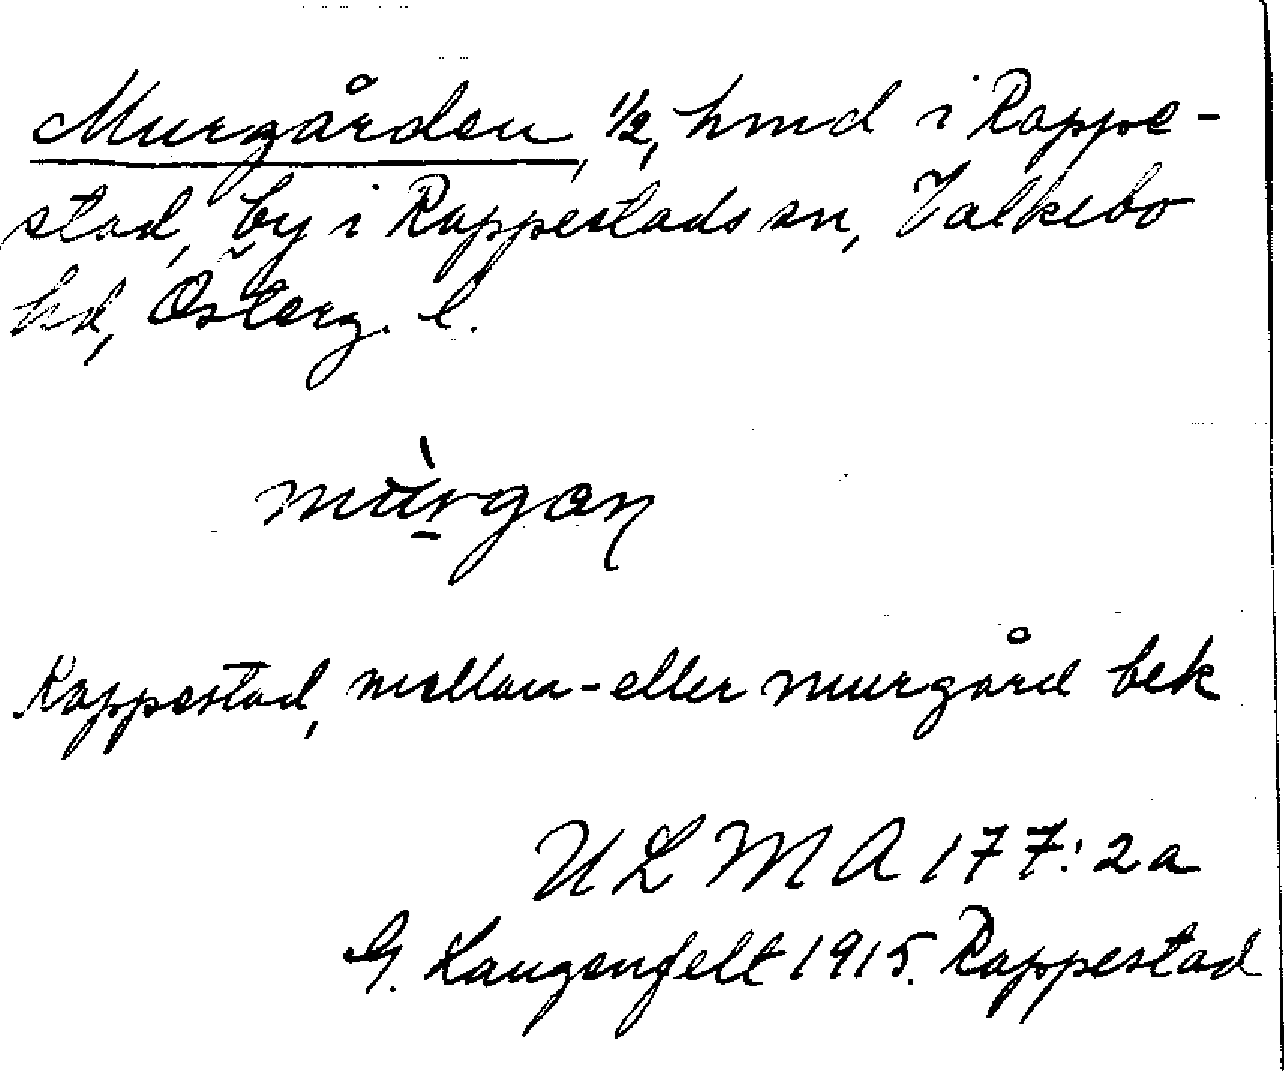 Murgården, 1/2, hmd i Rappe-
stad, by i Rappestads sn, Valkebo
hd, Österg. l.
mùrgan
Rappestad, mellan- eller murgård bek
ULMA 177:2a
G. Langenfelt 1915. Rappestad